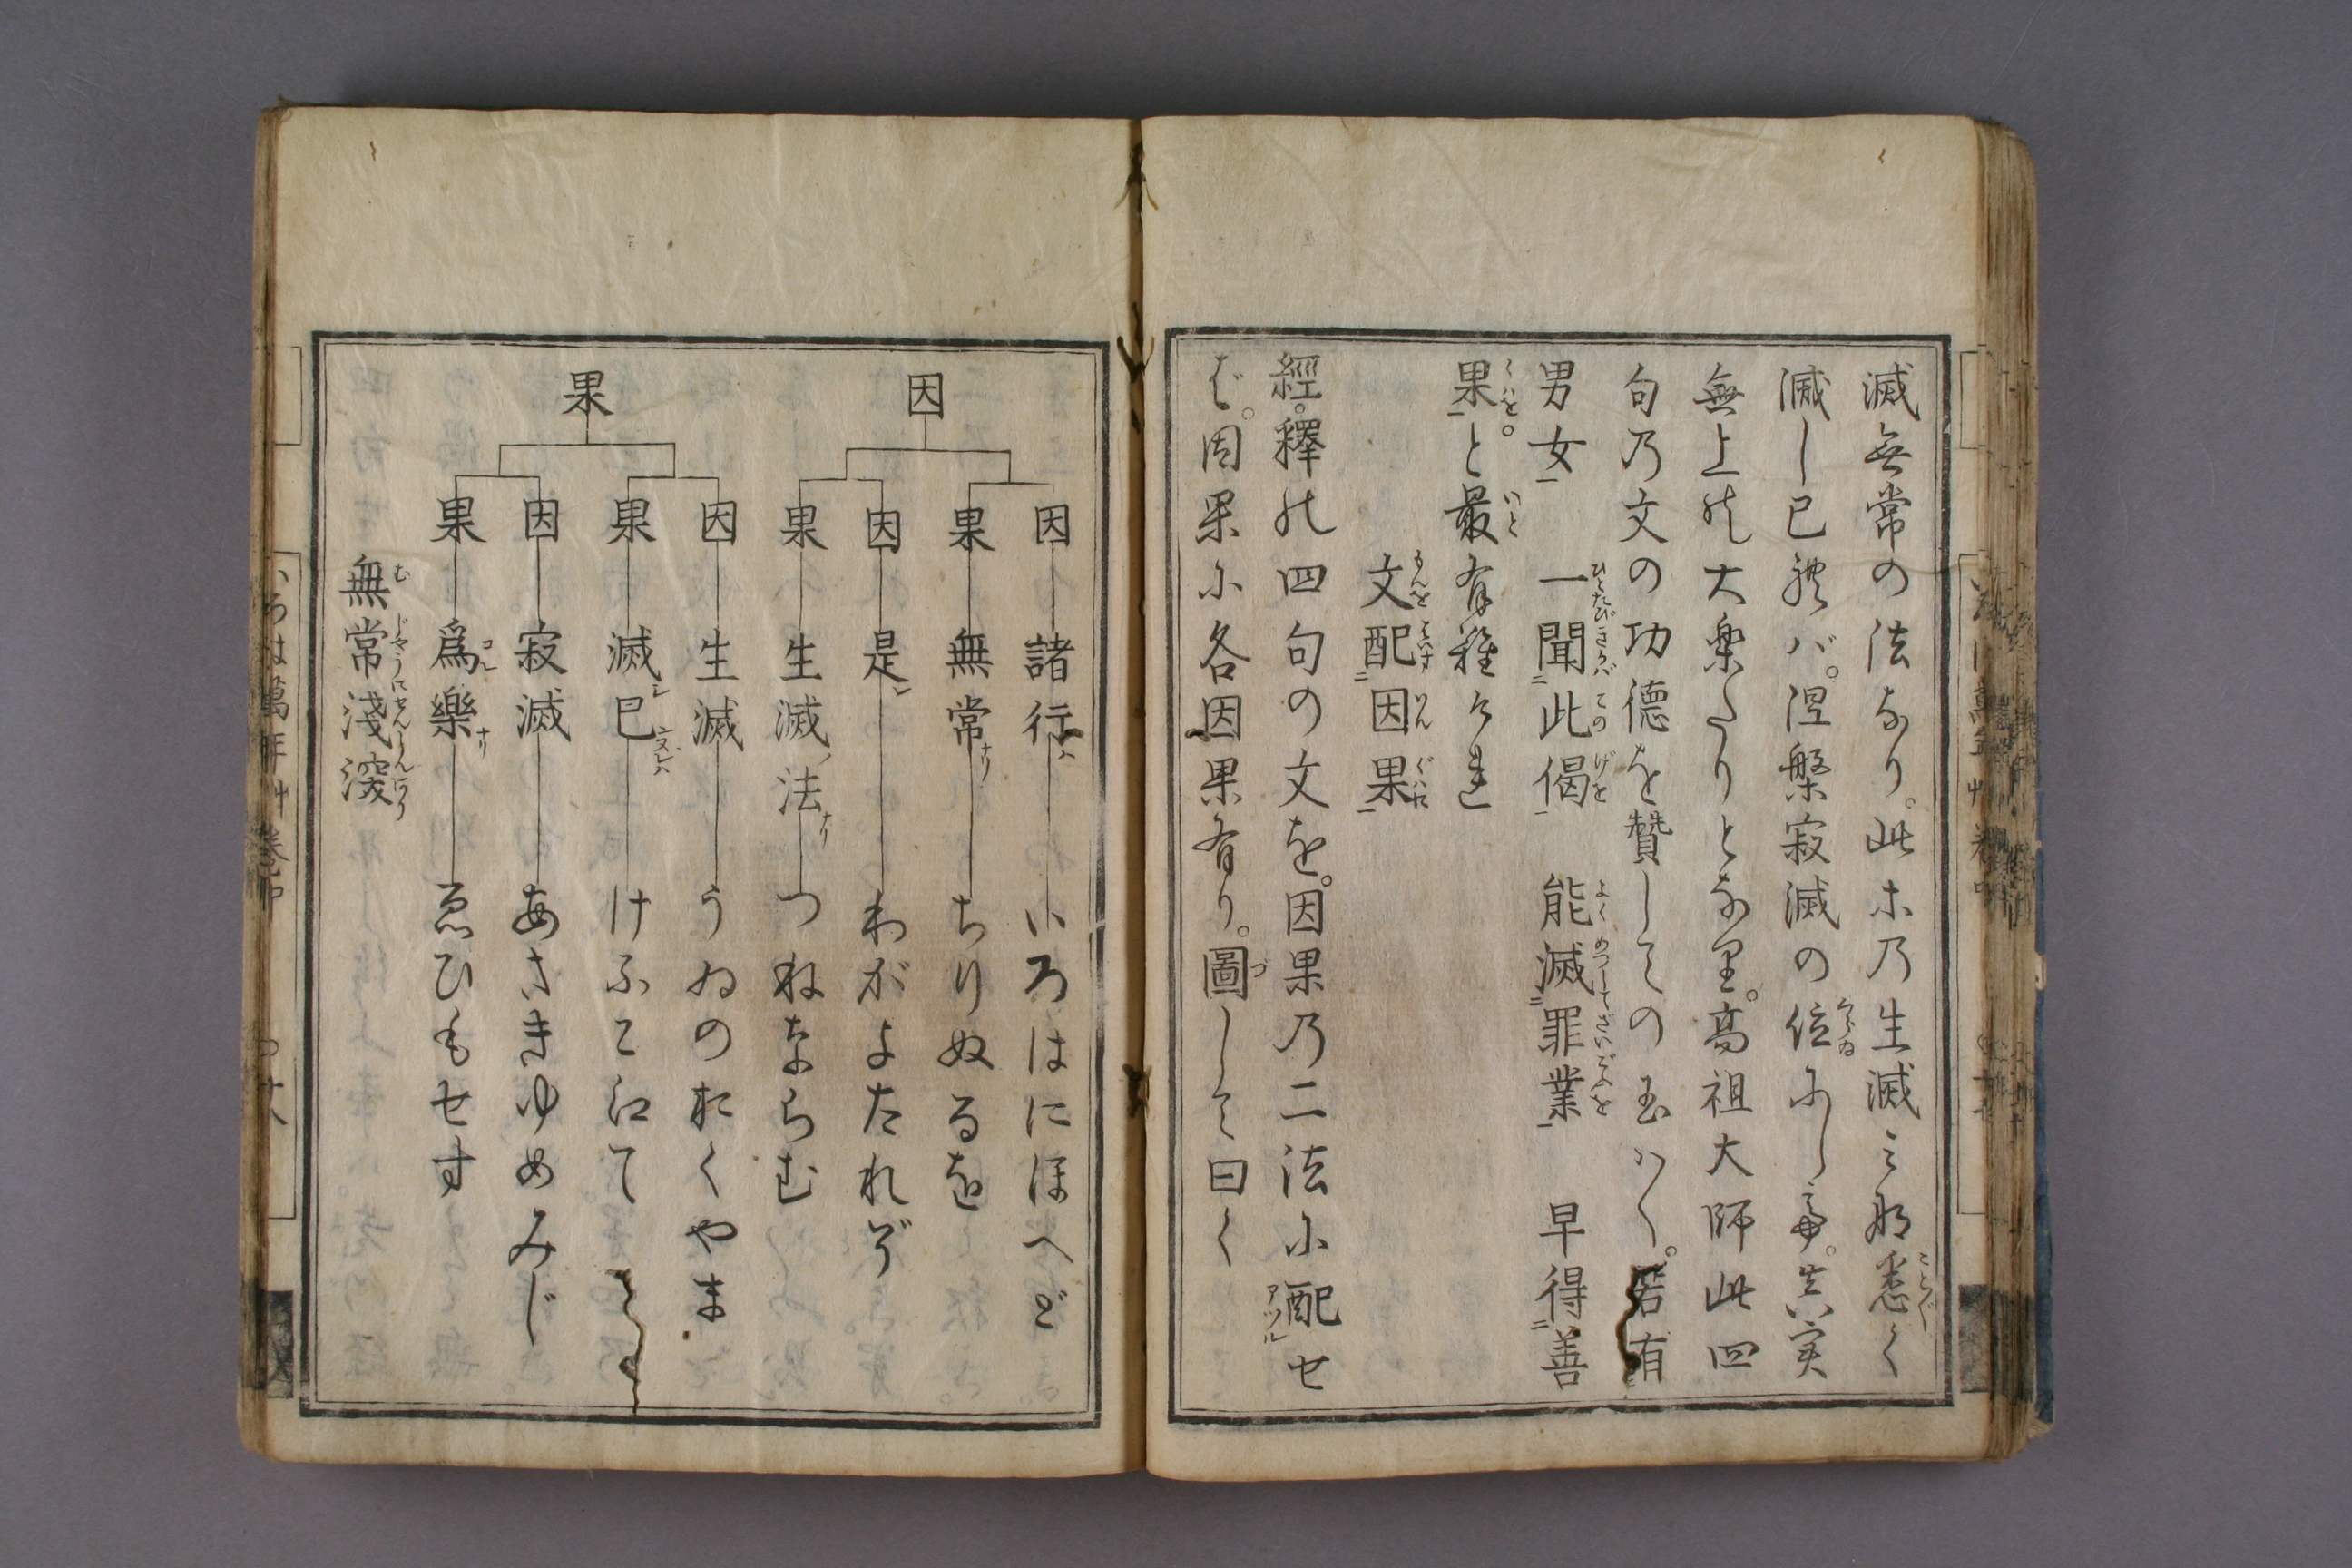 滅無常の法なり。此等の生滅 滅悉く
滅し已れバ。涅槃寂滅の位にして。真実
無上の大楽たりとなり。高祖大師此四
句乃文の功徳を賛しての玉ハく。若有
男女 一聞此偈 能滅罪業 早得善
果。と最有難けれ
文配因果
經。釋の四句の文を。因果乃二法に配せ
ば。因果に各因果有り。圖して曰く
因
果
因 諸行ハ いろはにほへど
果 無常ナリ ちりぬるを
因 是レ わがよたれぞ
果 生滅ノ法ナリ つねならむ
因 生滅 うゐのおくやま
果 滅シ已ヌレハ けふこえて
因 寂滅 あさきゆめみじ
果 爲樂ナリ ゑひもせす
無常淺深
いろは萬年艸 卷中